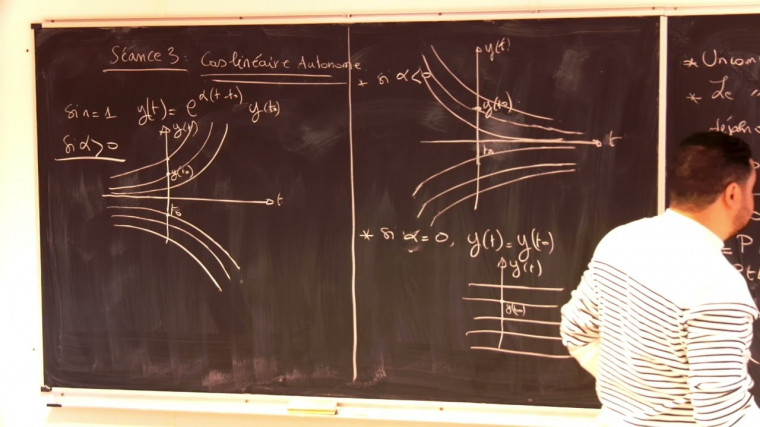 Séance 3: Cas linéaire Autonome
si n=1 y(t) = e^α(t-t₀) y(t₀)
si α>0
y(t)
y(t₀)
t
t₀
* si α<0
y(t)
y(t₀)
t
t₀
* si α=0, y(t)=y(t₀)
y(t)
y(t₀)
*
* Le